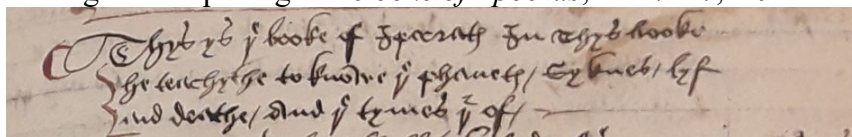 Thys ys yͤ booke of Ipocrath In Thys booke
he teachythe to knowe yͤ phaneth, Syknes, lyf
And deathe, And yͤ tymes yͬ of,